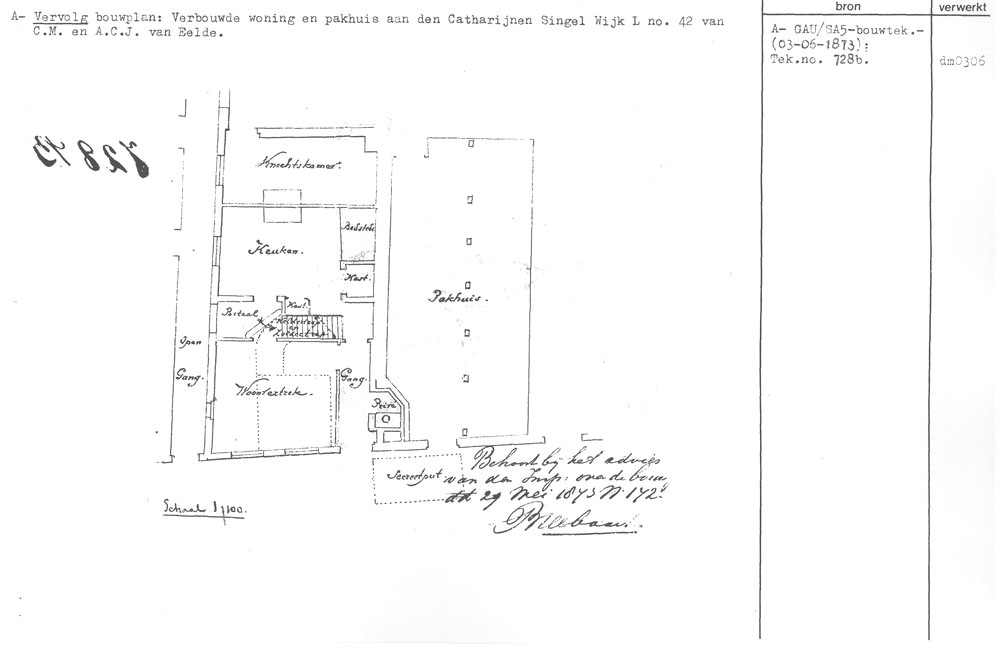 A- Vervolg bouwplan: Verbouwde woning en pakhuis aan den Catharijnen Singel Wijk L no. 42 van
C.M. en A.C.J. van Eelde.
bron
verwerkt
A- GAU/SA5-bouwtek.-
(03-06-1873):
Tek.no. 728b.
dm0306
728 B
Knechtskamer.
Bedstede
Keuken.
Kast.
Kast
Portaal
Keldertrap
en
Zoldertrap
Pakhuis.
Open
Gang.
Gang.
Woonvertrek.
Privé
Secreetput
Behoort bij het advies
van den Insp: over de bouw
dd 29 Mei 1873 N. 172.
Schaal 1/100.